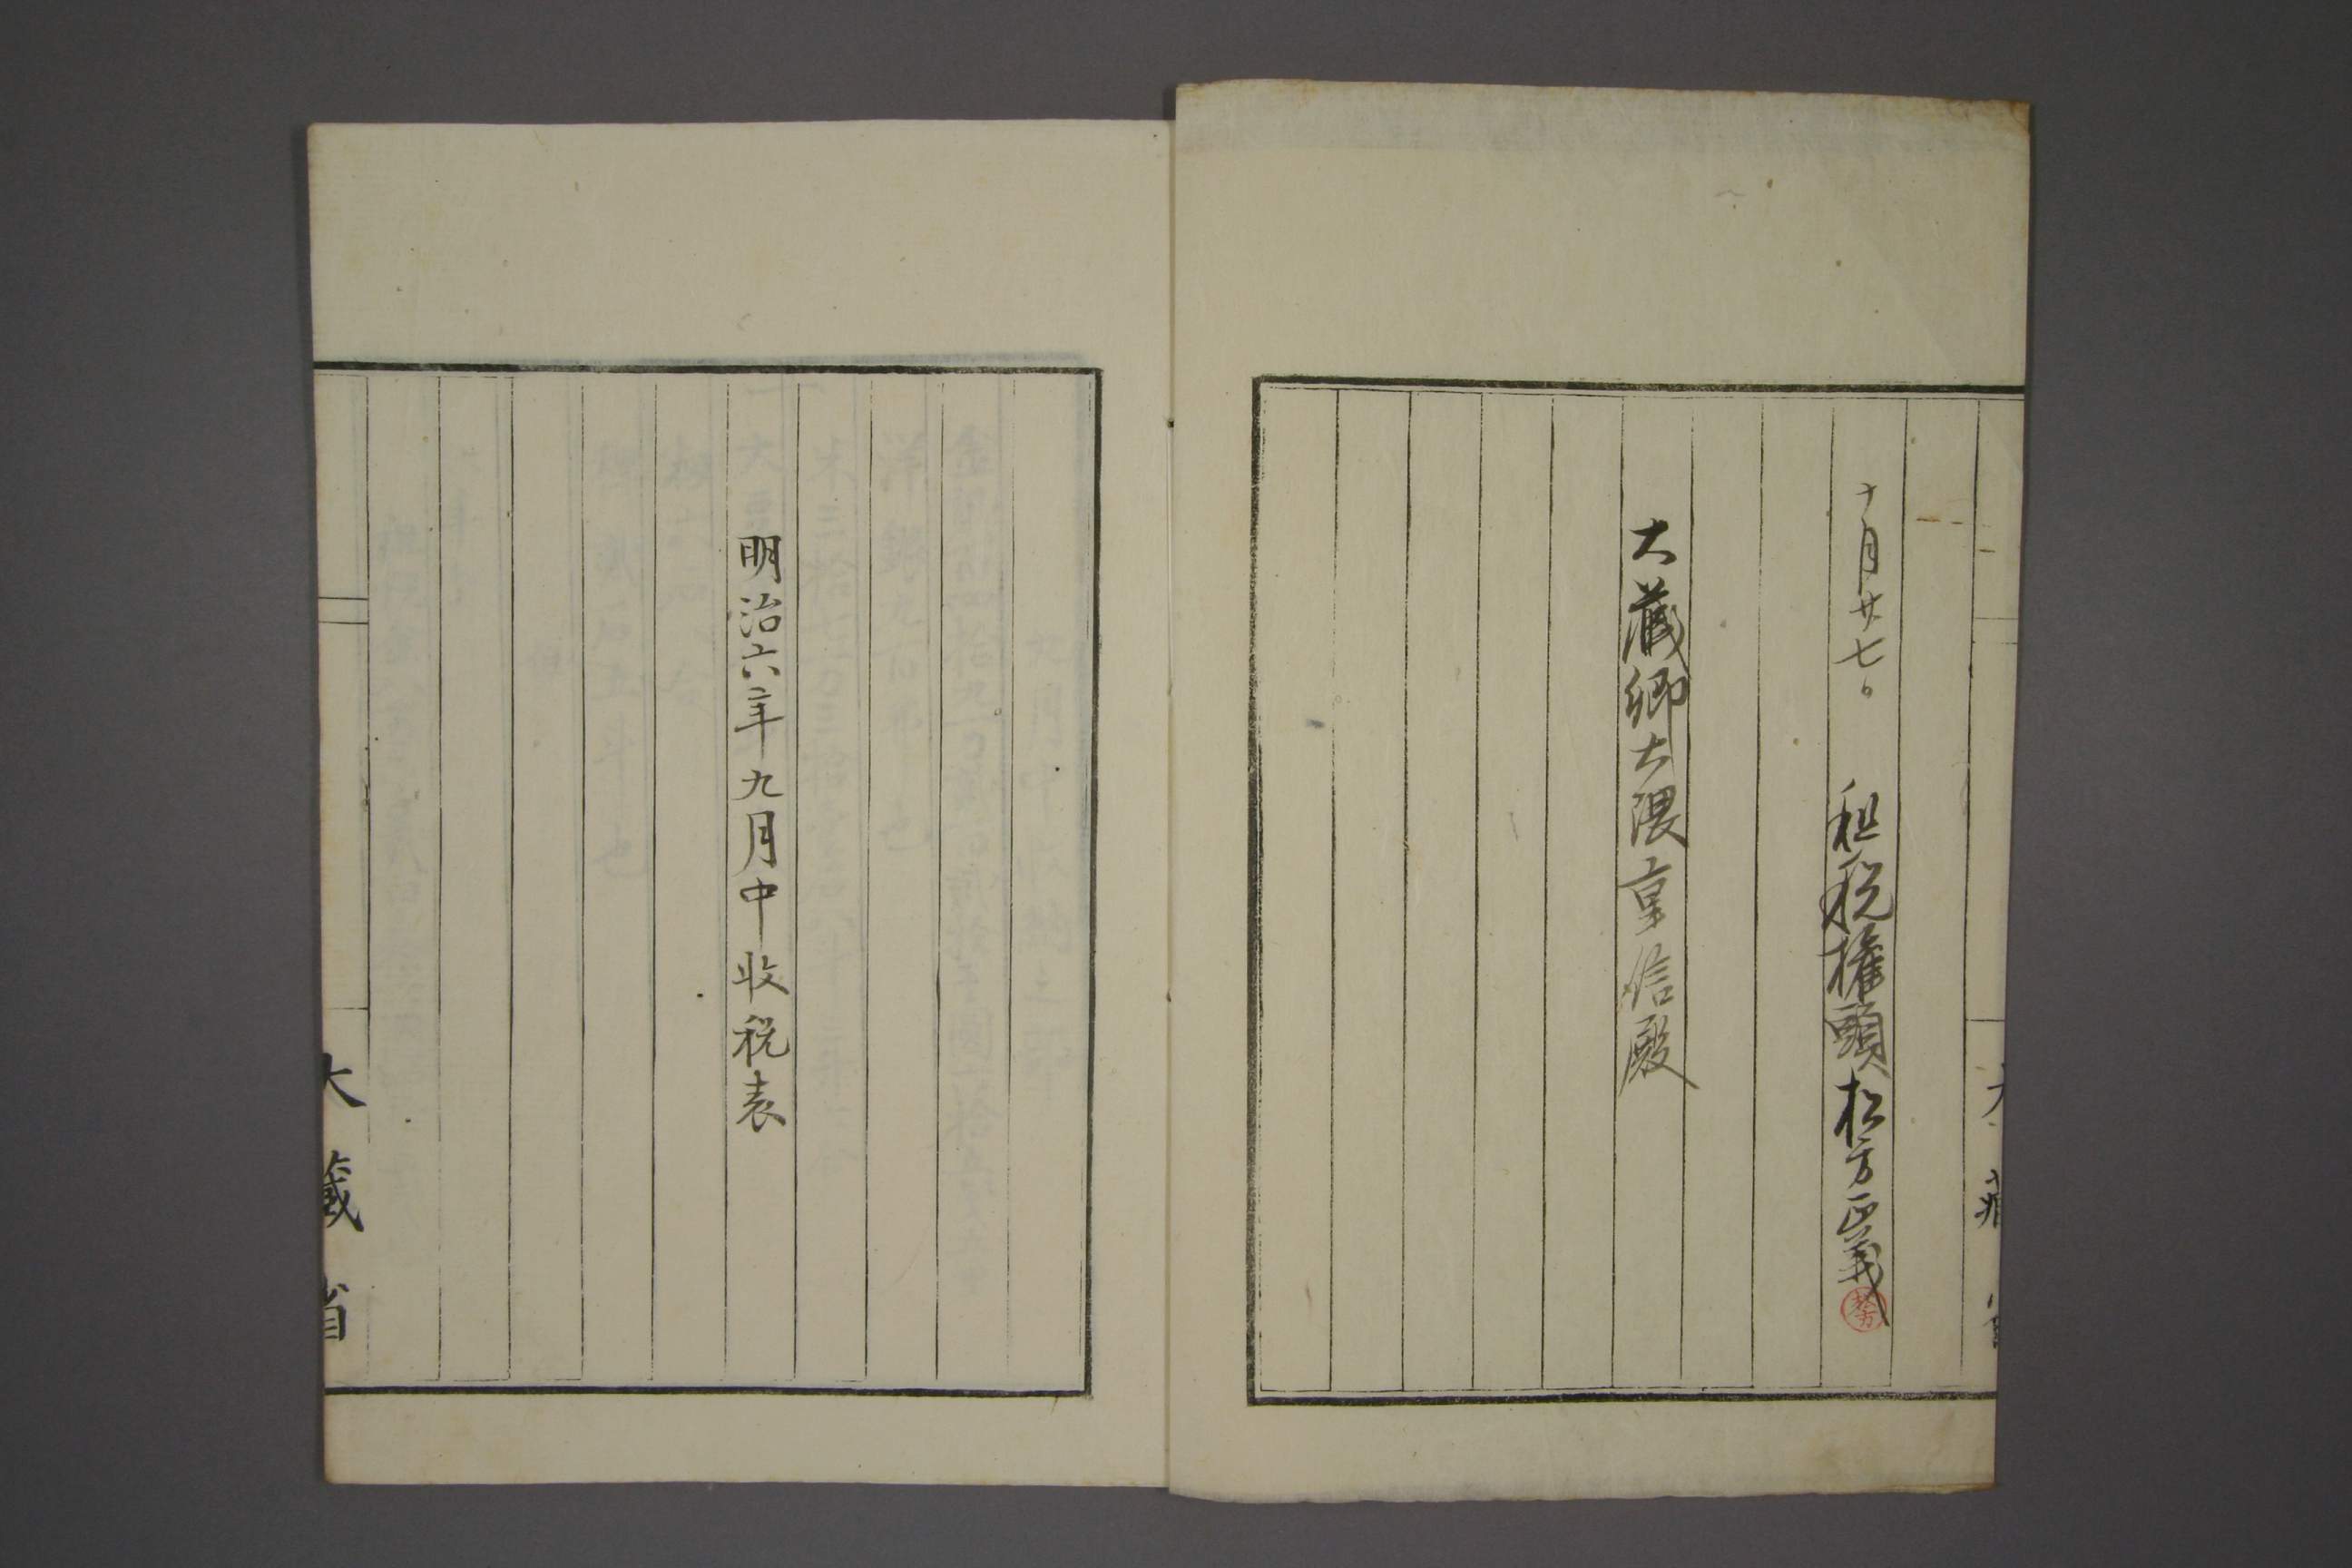 十月廿七日 租税権頭松方正義
大蔵卿大隈重信殿
明治六年九月中収税表
大蔵省